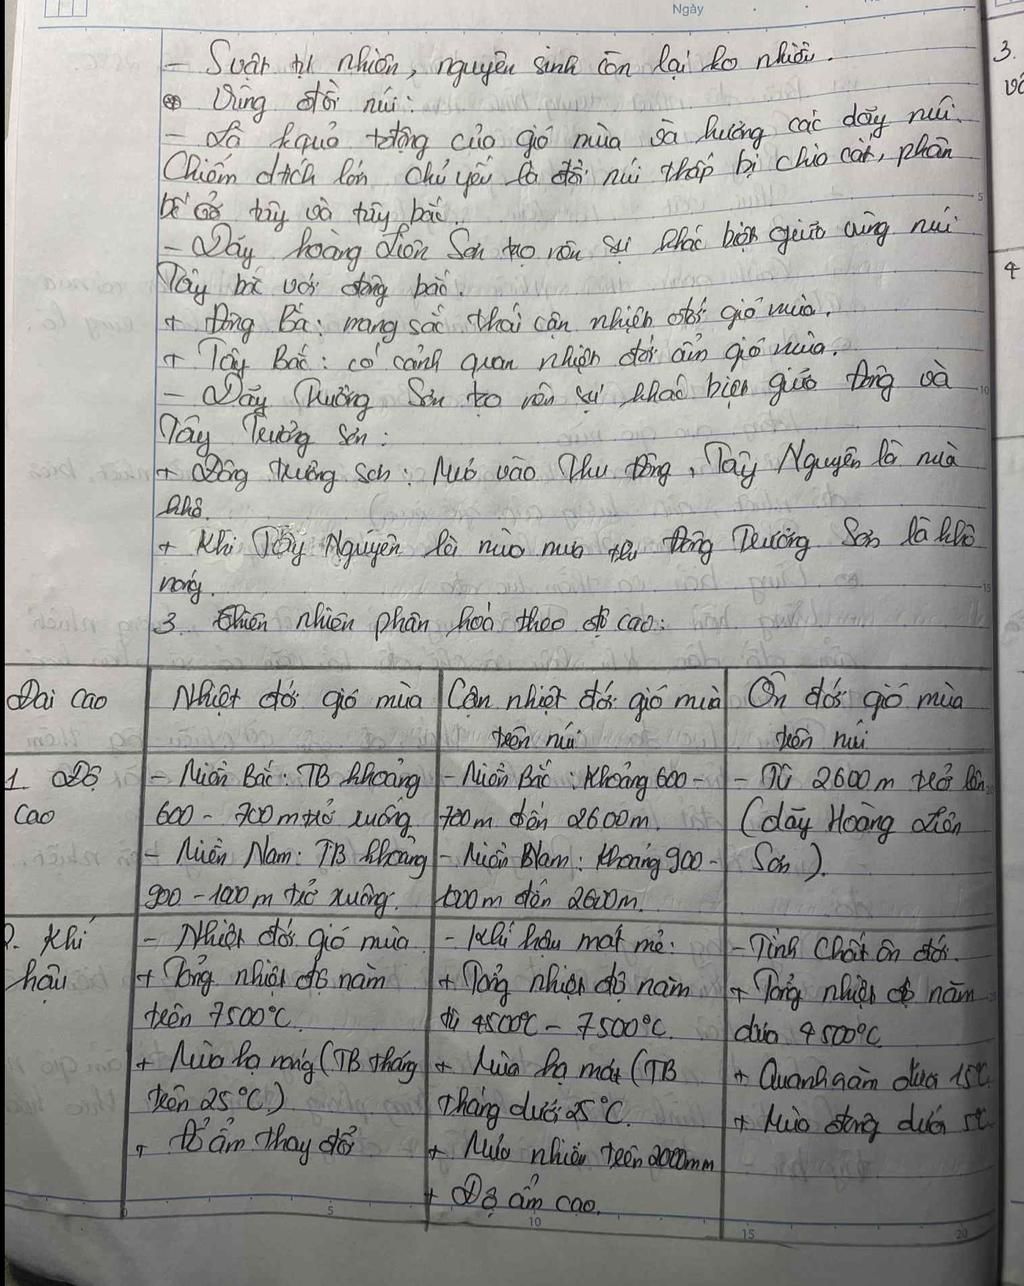 Ngày
- Svật tự nhiên, nguyên sinh còn lại ko nhiều.
⊕ Vùng đồi núi:
- Là kquả tđộng của gió mùa và hướng các dãy núi.
Chiếm dtích lớn chủ yếu là đồi núi thấp bị chia cắt, phân
bố ở tây và tây bắc.
- Dãy hoàng Liên Sơn tạo nên sự khác biệt giữa vùng núi
Tây bắc với đông bắc.
+ Đông Bắ: mang sắc thái cận nhiệt đới gió mùa.
+ Tây Bắc: có cảnh quan nhiệt đới ẩm gió mùa.
- Dãy Trường Sơn tạo nên sự khác biệt giữa Đông và
Tây Trường Sơn:
+ Đông trường sơn: Mưa vào Thu đông, Tây Nguyên là mùa
khô.
+ Khi Tây Nguyên là mùa mưa thì Đông Trường Sơn là khô
nóng.
3. Thiên nhiên phân hoá theo độ cao:
Đai cao
Nhiệt đới gió mùa
Cận nhiệt đới gió mùa
trên núi
Ôn đới gió mùa
trên núi
1. Độ
cao
- Miền Bắc: TB khoảng
600 - 700 m trở xuống
- Miền Nam: TB khoảng
900 - 1000 m trở xuống.
- Miền Bắc: Khoảng 600 -
700m đến 2600m.
- Miền Nam: Khoảng 900 -
1000m đến 2600m.
- Từ 2600m trở lên
(dãy Hoàng Liên
Sơn).
2. Khí
hậu
- Nhiệt đới gió mùa
+ Tổng nhiệt độ năm
trên 7500°C.
+ Mùa hạ nóng (TB tháng
trên 25°C)
+ Độ ẩm thay đổi
- Khí hậu mát mẻ:
+ Tổng nhiệt độ năm
từ 4500°C - 7500°C.
+ Mùa hạ mát (TB
tháng dưới 25°C.
+ Mưa nhiều trên 2000mm
+ Độ ẩm cao.
- Tính chất ôn đới.
+ Tổng nhiệt độ năm
dưới 4500°C
+ Quanh năm dưới 15°C
+ Mùa đông dưới 5°C
3.
4
5
10
15
0
5
10
15
20